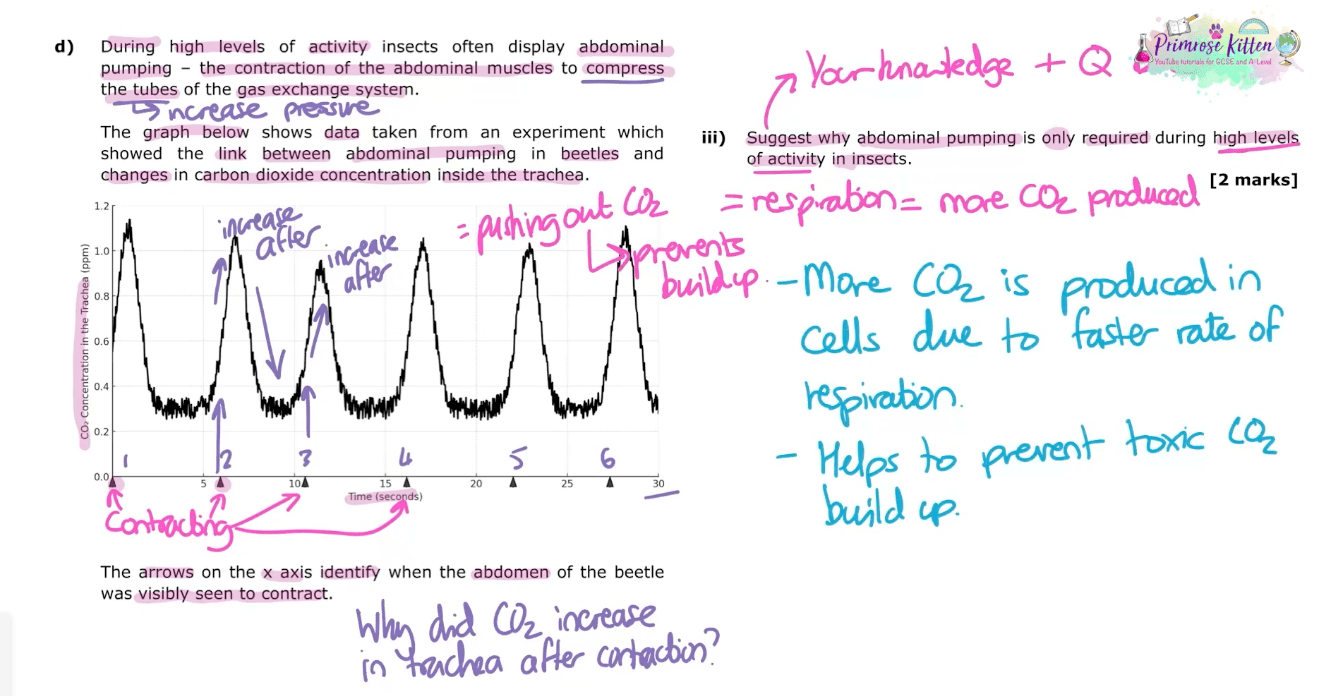 d) During high levels of activity insects often display abdominal
pumping – the contraction of the abdominal muscles to compress
the tubes of the gas exchange system.
↳ increase pressure
The graph below shows data taken from an experiment which
showed the link between abdominal pumping in beetles and
changes in carbon dioxide concentration inside the trachea.
= pushing out CO₂
↳ prevents
build up.
increase
after
increase
after
CO₂ Concentration in the Trachea (ppm)
1.2
1.0
0.8
0.6
0.4
0.2
0.0
1 2 3 4 5 6
5 10 15 20 25 30
Time (seconds)
Contracting
The arrows on the x axis identify when the abdomen of the beetle
was visibly seen to contract.
Why did CO₂ increase
in trachea after contraction?
Your knowledge + Q
Primrose Kitten
YouTube tutorials for GCSE and A-Level
iii) Suggest why abdominal pumping is only required during high levels
of activity in insects.
[2 marks]
= respiration = more CO₂ produced
- More CO₂ is produced in
cells due to faster rate of
respiration.
- Helps to prevent toxic CO₂
build up.